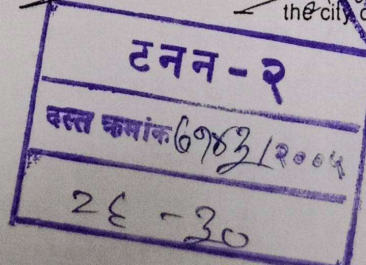 the city
टनन - २
दस्त क्रमांक ७१४३/२००५
२६ - ३०